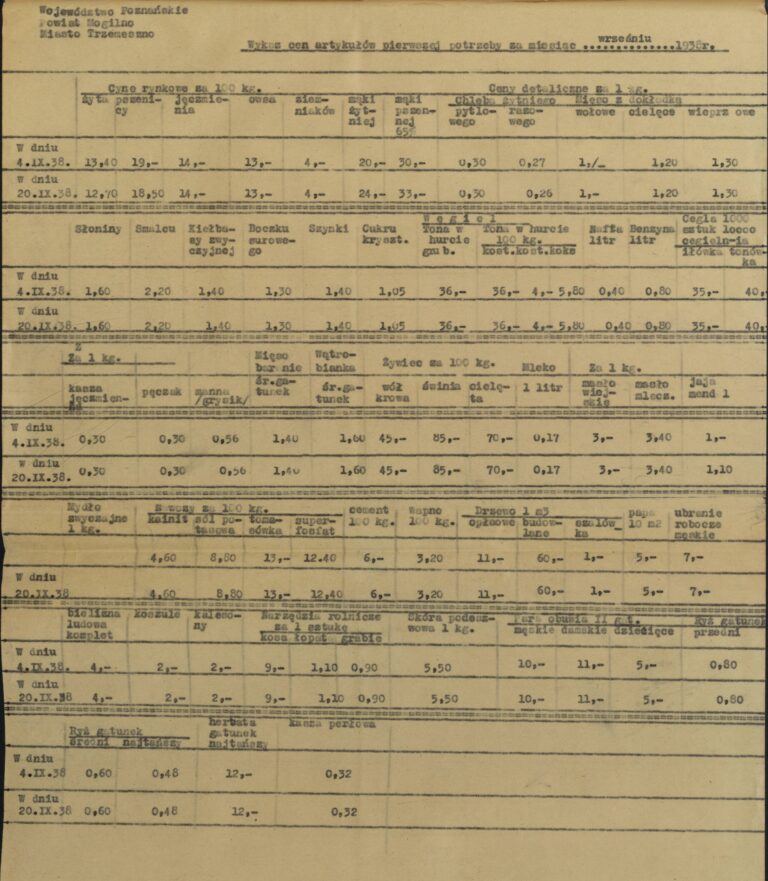 Województwo Poznańskie
Powiat Mogilno
Miasto Trzemeszno
Wykaz cen artykułów pierwszej potrzeby za miesiąc wrześniu 1938r.
Cyne rynkowe za 100 kg. Ceny detaliczne za 1 kg.
żyta pszeni- jęczmie- owsa ziem- mąki mąki Chleba żytniego Mięso z dokładką
cy nia niaków żyt- pszen- pytlo- razo- wołowe cielęce wieprz owe
niej nej wego wego
65%
W dniu
4.IX.38. 13,40 19,- 14,- 13,- 4,- 20,- 30,- 0,30 0,27 1,/- 1,20 1,30
W dniu
20.IX.38. 12,70 18,50 14,- 13,- 4,- 24,- 33,- 0,30 0,26 1,- 1,20 1,30
W ę g i e l Cegła 1000
Słoniny Smalcu Kiełba- Boczku Szynki Cukru Tona w Tona w hurcie Nafta Benzyna sztuk locco
sy zwy- surowe- kryszt. hurcie 100 kg. litr litr cegieln-ia
czyjnej go grub. kost.kost.koks iłówka tonów-
ka
W dniu
4.IX.38. 1,60 2,20 1,40 1,30 1,40 1,05 36,- 36,- 4,- 5,80 0,40 0,80 35,- 40,
W dniu
20.IX.38. 1,60 2,20 1,40 1,30 1,40 1,05 36,- 36,- 4,- 5,80 0,40 0,80 35,- 40,
Z
Za 1 kg. Mięso Wątro- Żywiec za 100 kg. Mleko Za 1 kg.
baranie bianka
kasza pęczak manna śr.ga- śr.ga- wół świnia cielę- 1 litr masło masło jaja
jęczmien- /grysik/ tunek tunek krowa ta wiej- mlecz. mend 1
na skie
W dniu
4.IX.38. 0,30 0,30 0,56 1,40 1,60 45,- 85,- 70,- 0,17 3,- 3,40 1,-
W dniu
20.IX.38. 0,30 0,30 0,56 1,40 1,60 45,- 85,- 70,- 0,17 3,- 3,40 1,10
Mydło Nawozy za 100 kg. cement wapno Drzewo 1 m3 papa ubranie
zwyczajne kainit sól po- toma- super- 100 kg. 100 kg. opłaowe budow- szalów 10 m2 robocze
1 kg. tasowa sówka fosfat lane ka męskie
4,60 8,80 13,- 12.40 6,- 3,20 11,- 60,- 1,- 5,- 7,-
W dniu
20.IX.38 4,60 8,80 13,- 12,40 6,- 3,20 11,- 60,- 1,- 5,- 7,-
bielizna koszule kaleso- Narzędzia rolnicze Skóra podesz- Para obuwia II gat. Ryż gatunek
ludowa ny za 1 sztukę wowa 1 kg. męskie damskie dziecięce przedni
komplet kosa łopat grabie
W dniu
4.IX.38. 4,- 2,- 2,- 9,- 1,10 0,90 5,50 10,- 11,- 5,- 0,80
W dniu
20.IX.38 4,- 2,- 2,- 9,- 1,10 0,90 5,50 10,- 11,- 5,- 0,80
Ryż gatunek herbata kasza perłowa
średni najtańszy gatunek
najtańszy
W dniu
4.IX.38 0,60 0,48 12,- 0,32
W dniu
20.IX.38 0,60 0,48 12,- 0,32